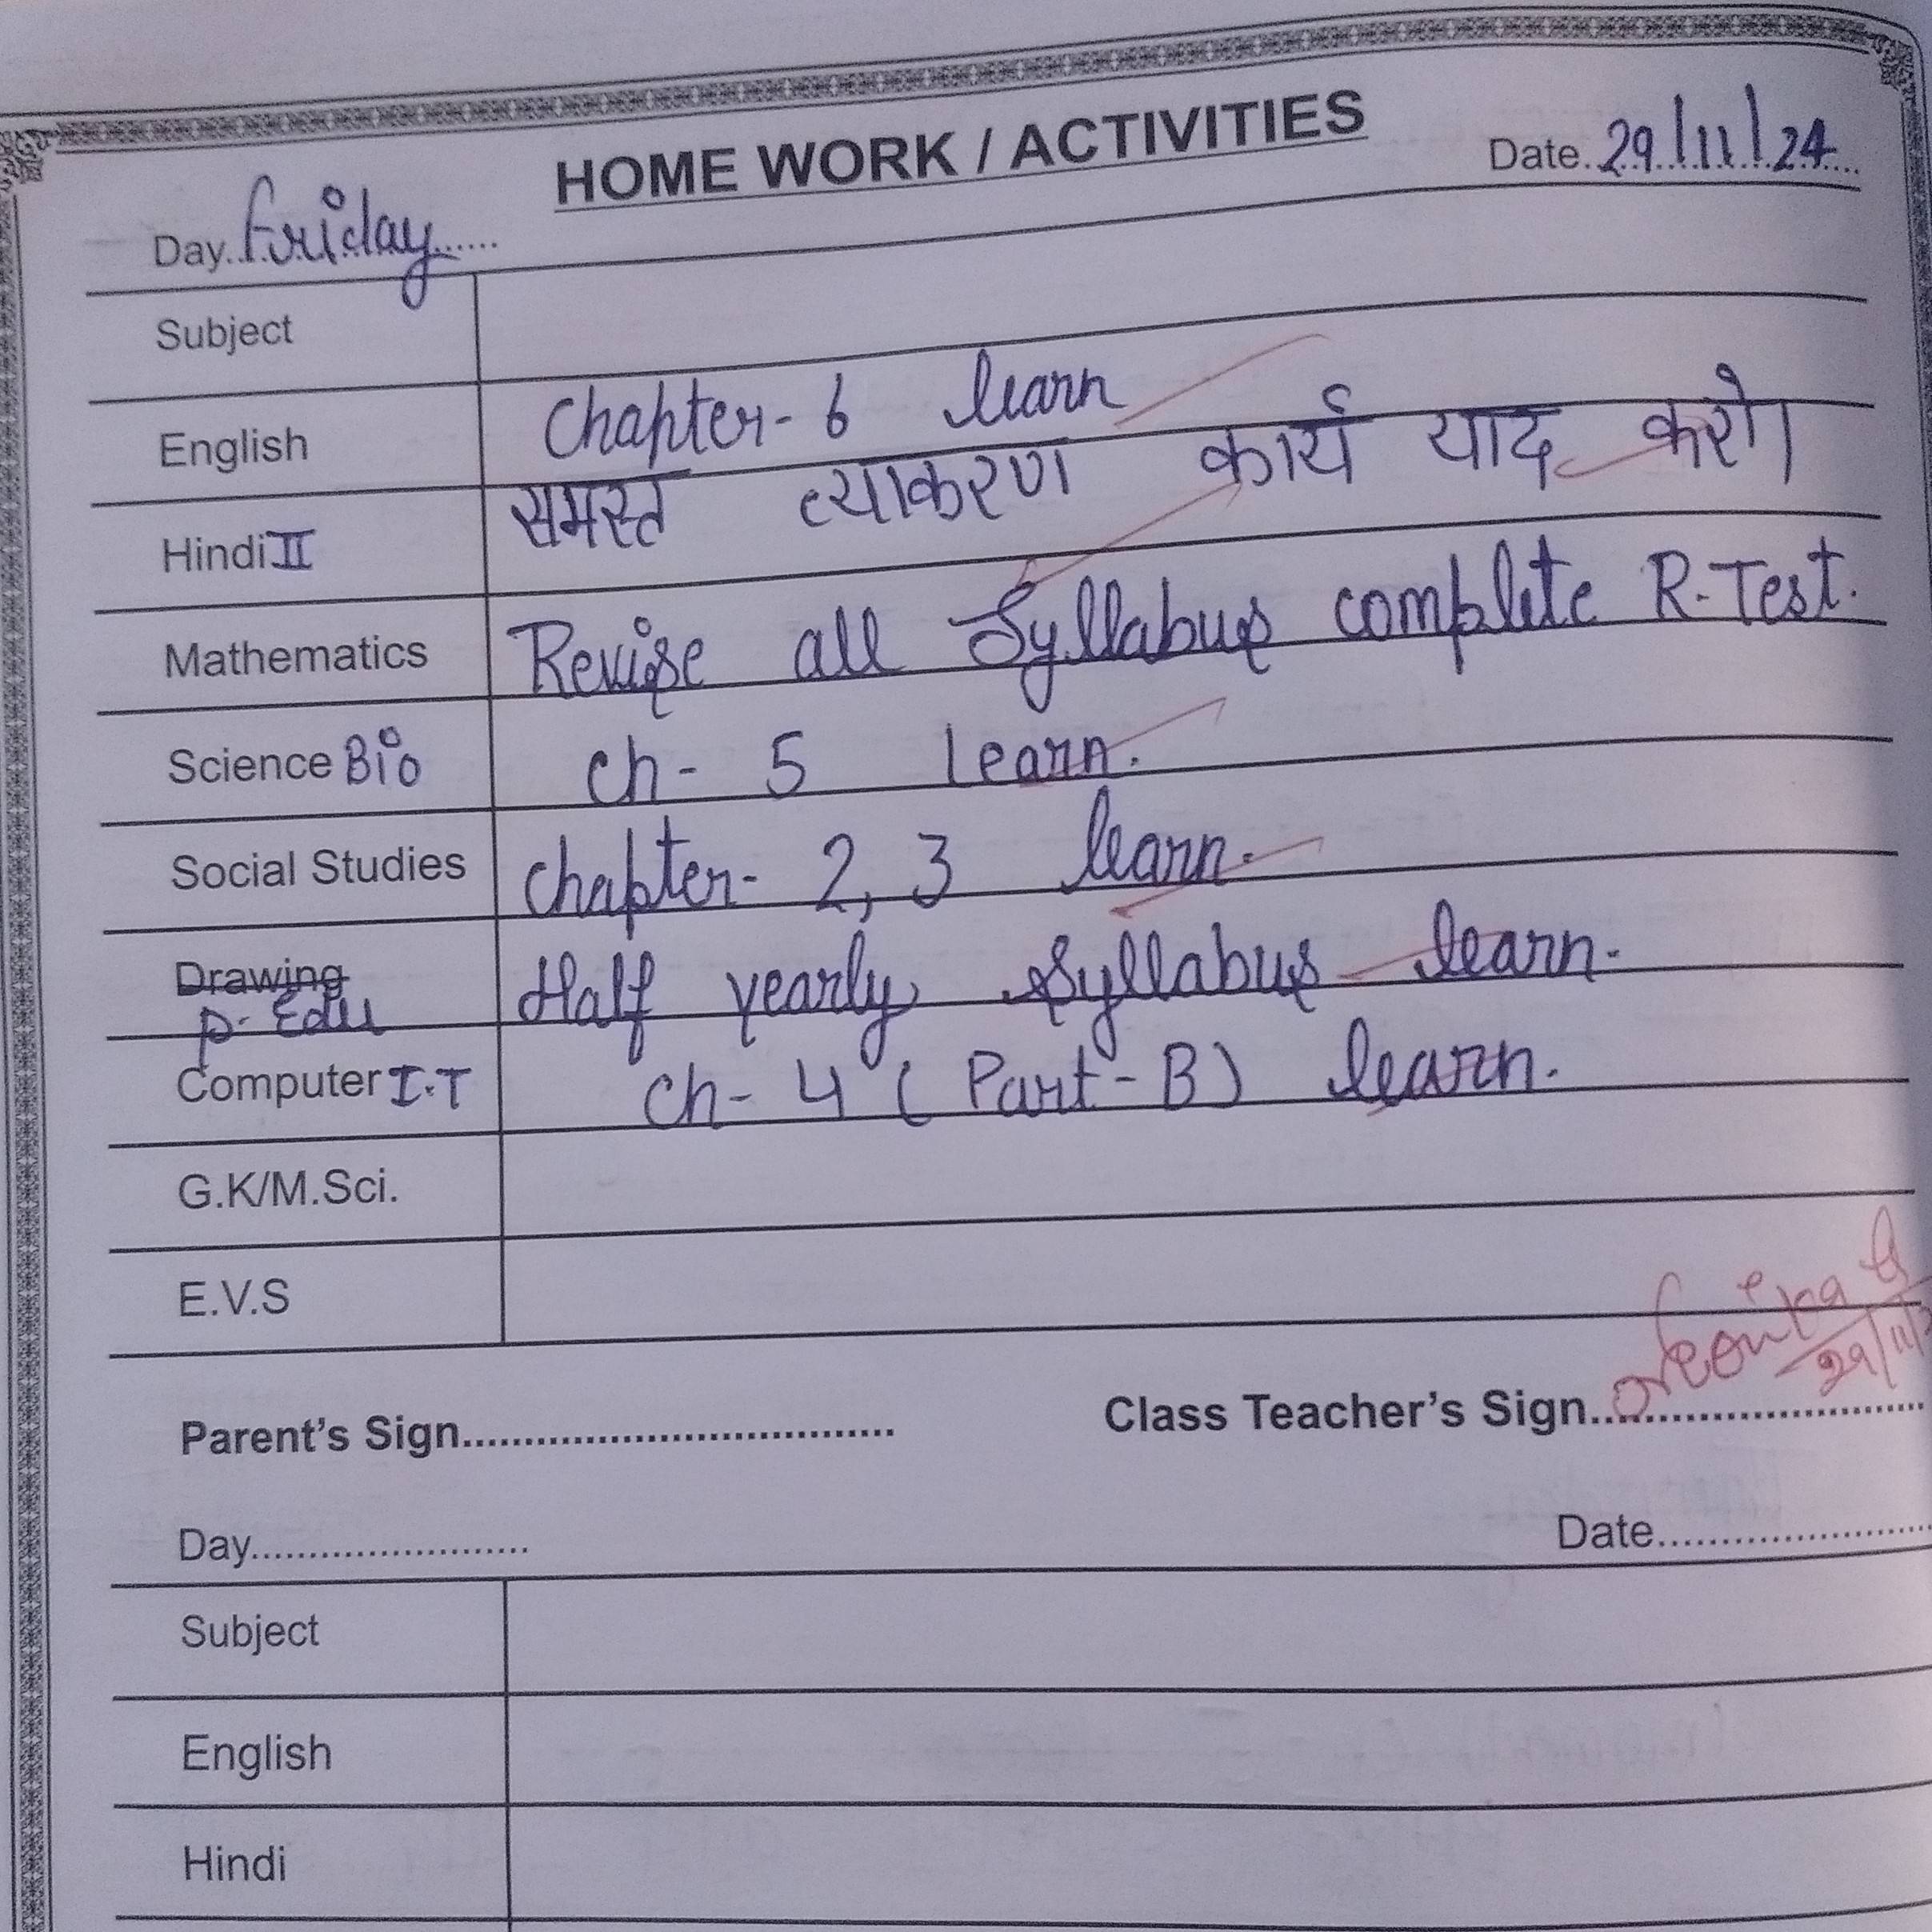 HOME WORK / ACTIVITIES
Day..Friday...... Date..29/11/24...
Subject
English Chapter-6 learn
Hindi II समस्त व्याकरण कार्य याद करो।
Mathematics Revise all Syllabus complete R-Test.
Science Bio ch- 5 learn.
Social Studies chapter- 2, 3 learn.
Drawing
P. Edu Half yearly Syllabus learn.
Computer I.T ch- 4 (Part-B) learn.
G.K/M.Sci.
E.V.S
29/11/
Parent's Sign.................................... Class Teacher's Sign............................
Day........................ Date........................
Subject
English
Hindi